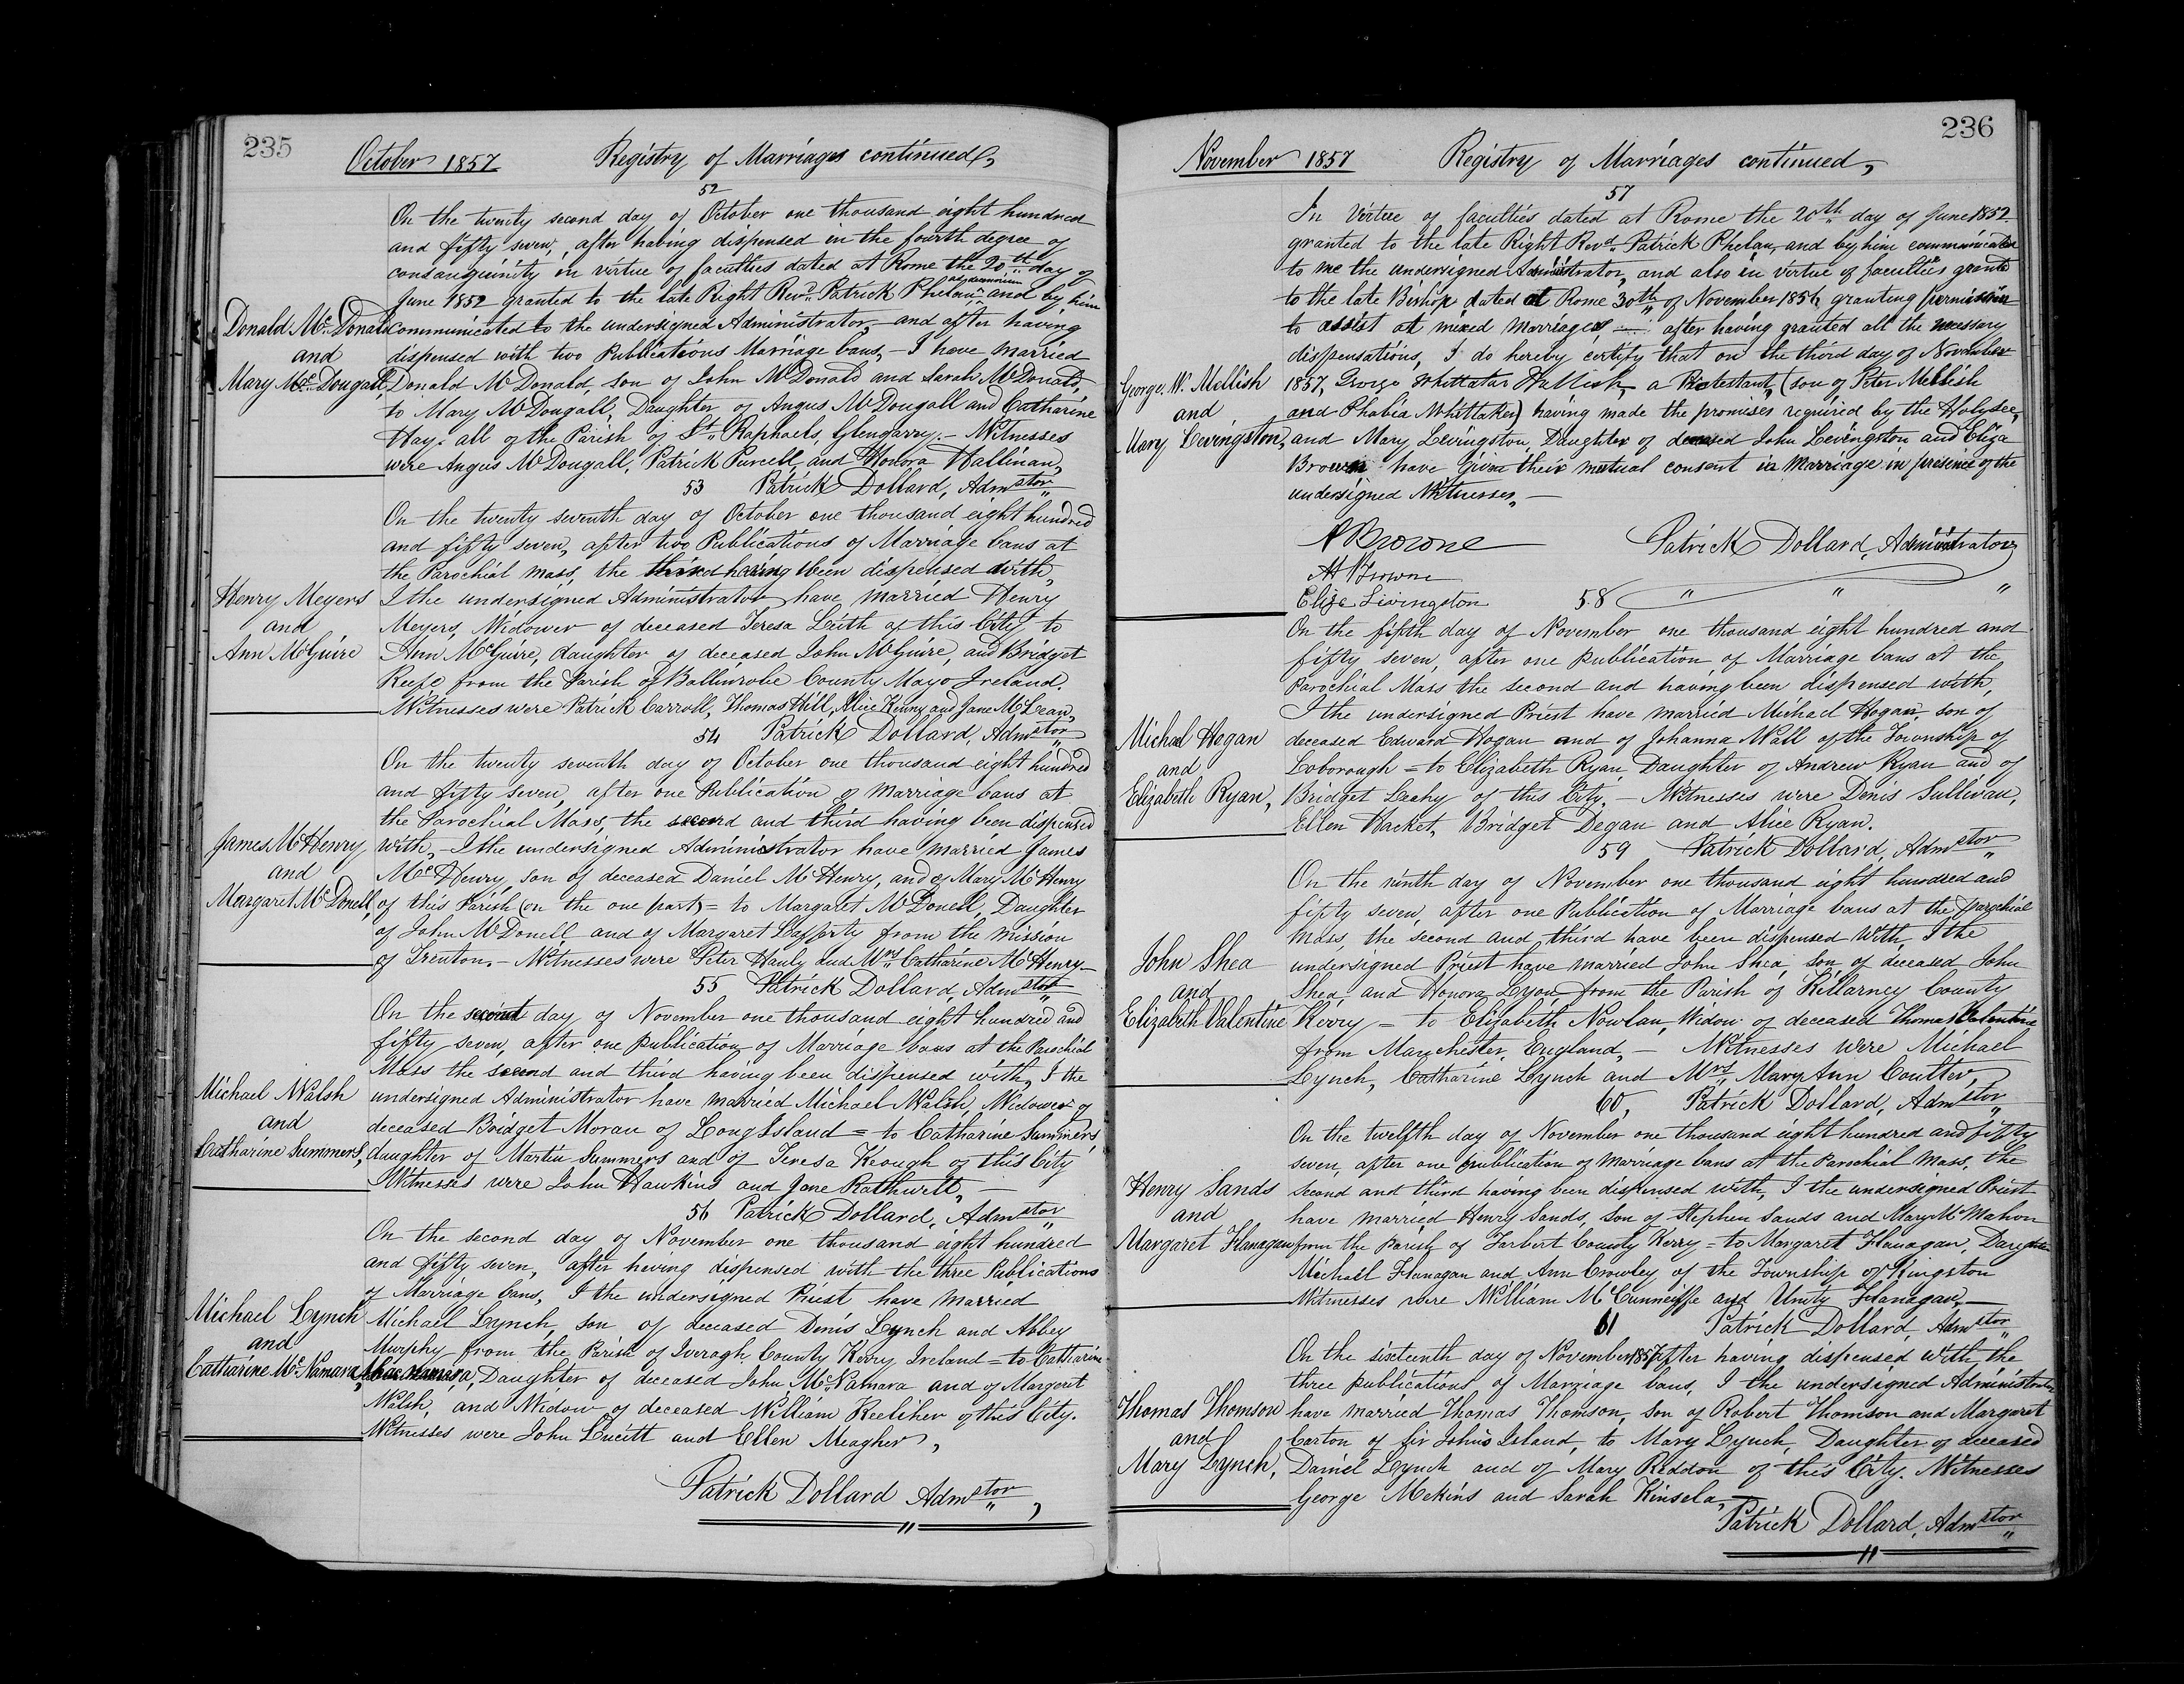 235
October 1857 Registry of Marriages continued,
52
On the twenty second day of October one thousand eight hundred
and fifty seven, after having dispensed in the fourth degree of
consanguinity in virtue of faculties dated at Rome the 20th day of
June 1852 granted to the late Right Revd. Patrick Phelan, and by him
Donald McDonald
and
Mary McDougall,
communicated to the undersigned Administrator, and after having
dispensed with two Publications Marriage bans, - I have married
Donald McDonald, son of John McDonald and Sarah McDonald,
to Mary McDougall, Daughter of Angus McDougall and Catharine
Hay. all of the Parish of St. Raphaels, Glengarry. - Witnesses
were Angus McDougall, Patrick Purcell, and Honora Hallinan,
53 Patrick Dollard, Admstor
On the twenty seventh day of October one thousand eight hundred
and fifty seven, after two Publications of Marriage bans at
the Parochial Mass, the third having been dispensed with,
Henry Meyers
and
Ann McGuire
I the undersigned Administrator have married Henry
Meyers, Widower of deceased Teresa Leith of this City to
Ann McGuire, daughter of deceased John McGuire, and Bridget
Keefe from the Parish of Ballinrobe County Mayo Ireland.
Witnesses were Patrick Carroll, Thomas Hill, Alice Kenny and Jane McLean,
54 Patrick Dollard, Admstor
On the twenty seventh day of October one thousand eight hundred
and fifty seven, after one Publication of Marriage bans at
the Parochial Mass, the second and third having been dispensed
James McHenry
and
Margaret McDonell,
with, - I the undersigned Administrator have married James
McHenry, son of deceased Daniel McHenry, and of Mary McHenry
of this Parish (on the one part) = to Margaret McDonell, Daughter
of John McDonell and of Margaret Lafforty from the Mission
of Trenton. - Witnesses were Peter Hauly and Catharine McHenry -
55 Patrick Dollard, Admstor
On the second day of November one thousand eight hundred and
fifty seven, after one publication of Marriage bans at the Parochial
Mass the second and third having been dispensed with, I the
Michael Walsh
and
Catharine Summers,
undersigned Administrator have married Michael Walsh, Widower of
deceased Bridget Moran of Long Island = to Catharine Summers,
daughter of Martin Summers and of Teresa Keough of this City
Witnesses were John Hawkins and Jane Rathwell, -
56 Patrick Dollard, Admstor
On the second day of November one thousand eight hundred
and fifty seven, after having dispensed with the three Publications
of Marriage bans, I the undersigned Priest have married
Michael Lynch
and
Catharine McNamara,
Michael Lynch, son of deceased Denis Lynch and Abbey
Murphy from the Parish of Iveragh County Kerry Ireland = to Catharine
Macnamara, Daughter of deceased John McNamara and of Margaret
Walsh, and Widow of deceased William Keeliher of this City.
Witnesses were John Lucitt and Ellen Meagher,
Patrick Dollard Admstor,
236
November 1857 Registry of Marriages continued,
57
In virtue of faculties dated at Rome the 20th day of June 1852
granted to the late Right Revd. Patrick Phelan, and by him communicated
to me the undersigned Administrator, and also in virtue of faculties granted
to the late Bishop dated at Rome 30th of November 1856, granting permission
to assist at mixed marriages, after having granted all the necessary
dispensations, I do hereby certify that on the third day of November
George W. Mellish
and
Mary Levingston,
1857, George Whittatar Mellish, a Protestant, (son of Peter Mellish
and Phabia Whittaker) having made the promises required by the Holy See,
and Mary Levingston, Daughter of deceased John Levingston and Eliza
Brown have given their mutual consent in Marriage in presence of the
undersigned Witnesses, -
Browne Patrick Dollard, Administrator
Browne
Eliza Livingston 58 " " "
On the fifth day of November one thousand eight hundred and
fifty seven, after one publication of Marriage bans at the
Parochial Mass the second and having been dispensed with,
Michael Hogan
and
Elizabeth Ryan,
I the undersigned Priest have married Michael Hogan, son of
deceased Edward Hogan and of Johanna Wall of the Township of
Loborough = to Elizabeth Ryan Daughter of Andrew Ryan and of
Bridget Leahy of this City. - Witnesses were Denis Sullivan,
Ellen Hacket, Bridget Degan and Alice Ryan.
59 Patrick Dollard, Admstor
On the ninth day of November one thousand eight hundred and
fifty seven, after one Publication of Marriage bans at the parochial
Mass, the second and third have been dispensed with, I the
John Shea
and
Elizabeth Valentine
undersigned Priest have married John Shea, son of deceased John
Shea, and Honora Lyon, from the Parish of Killarney County
Kerry = to Elizabeth Nowlan, Widow of deceased Thomas Valentine
from Manchester, England, - Witnesses were Michael
Lynch, Catharine Lynch and Mrs. Mary Ann Coulter,
60, Patrick Dollard, Admstor
On the twelfth day of November one thousand eight hundred and fifty
seven, after one publication of marriage bans at the Parochial Mass, the
Henry Sands
and
Margaret Flanagan
second and third having been dispensed with, I the undersigned Priest
have married Henry Sands, son of Stephen Sands and Mary McMahon
from the Parish of Tarbert County Kerry = to Margaret Flanagan, Daughter
Michael Flanagan and Ann Crowley of the Township of Kingston
Witnesses were William McCunneiffe and Unity Flanagan, -
61 Patrick Dollard, Admstor
On the sixteenth day of November 1857 after having dispensed with the
three publications of Marriage bans, I the undersigned Administrator
Thomas Thomson
and
Mary Lynch,
have married Thomas Thomson, son of Robert Thomson and Margaret
Carton of Sir John's Island, to Mary Lynch, Daughter of deceased
Daniel Lynch and of Mary Reddon of this City. Witnesses
George Mekins and Sarah Kinsela, -
Patrick Dollard, Admstor